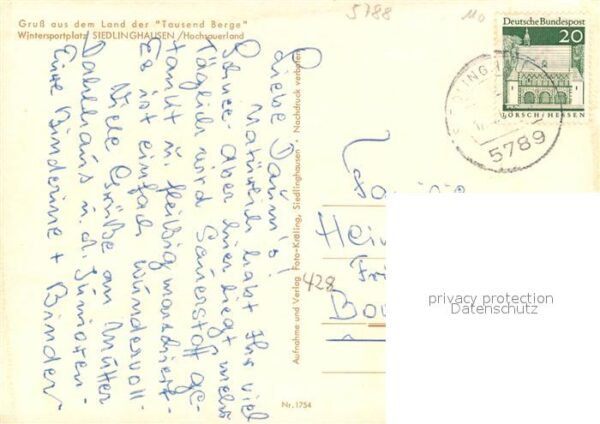 Gruß aus dem Land der "Tausend Berge"
Wintersportplatz SIEDLINGHAUSEN /Hochsauerland
5788
110
Deutsche Bundespost
20
LORSCH/HESSEN
5789
Liebe
Natürlich habt Ihr viel
Schnee - aber hier liegt mehr
Täglich wird Sauerstoff ge-
tankt u. fleißig marschiert
Es ist einfach wundervoll -
Viele Grüße an Mutter
Dahlhaus u. d. Junioren -
Eure Binderine + Binder
Aufnahme und Verlag Foto-Kräling, Siedlinghausen · Nachdruck verboten
Familie
428
Nr. 1754
privacy protection
Datenschutz